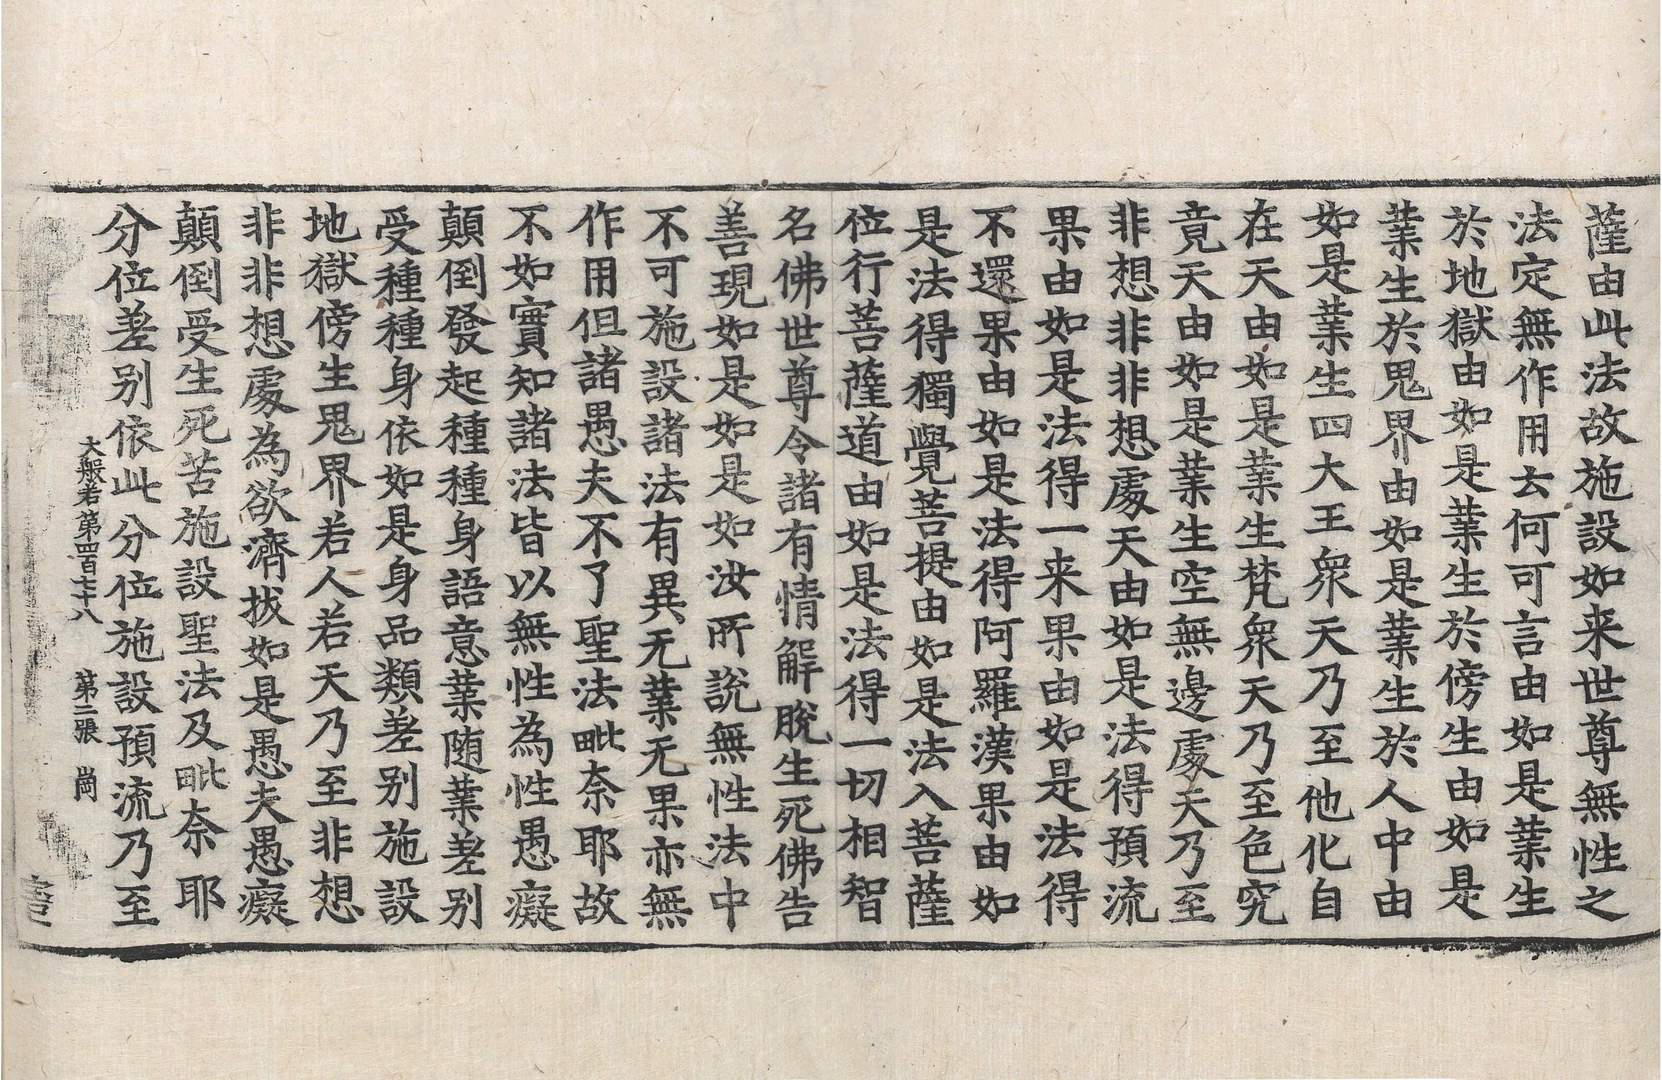 薩由此法故施設如来世尊無性之
法定無作用云何可言由如是業生
於地獄由如是業生於傍生由如是
業生於鬼界由如是業生於人中由
如是業生四大王衆天乃至他化自
在天由如是業生梵衆天乃至色究
竟天由如是業生空無邊處天乃至
非想非非想處天由如是法得預流
果由如是法得一来果由如是法得
不還果由如是法得阿羅漢果由如
是法得獨覺菩提由如是法入菩薩
位行菩薩道由如是法得一切相智
名佛世尊令諸有情解脫生死佛告
善現如是如是如汝所說無性法中
不可施設諸法有異无業无果亦無
作用但諸愚夫不了聖法毗奈耶故
不如實知諸法皆以無性為性愚癡
顛倒發起種種身語意業随業差别
受種種身依如是身品類差别施設
地獄傍生鬼界若人若天乃至非想
非非想處為欲濟拔如是愚夫愚癡
顛倒受生死苦施設聖法及毗奈耶
分位差别依此分位施設預流乃至
大般若第四百七十八 第二張 崗